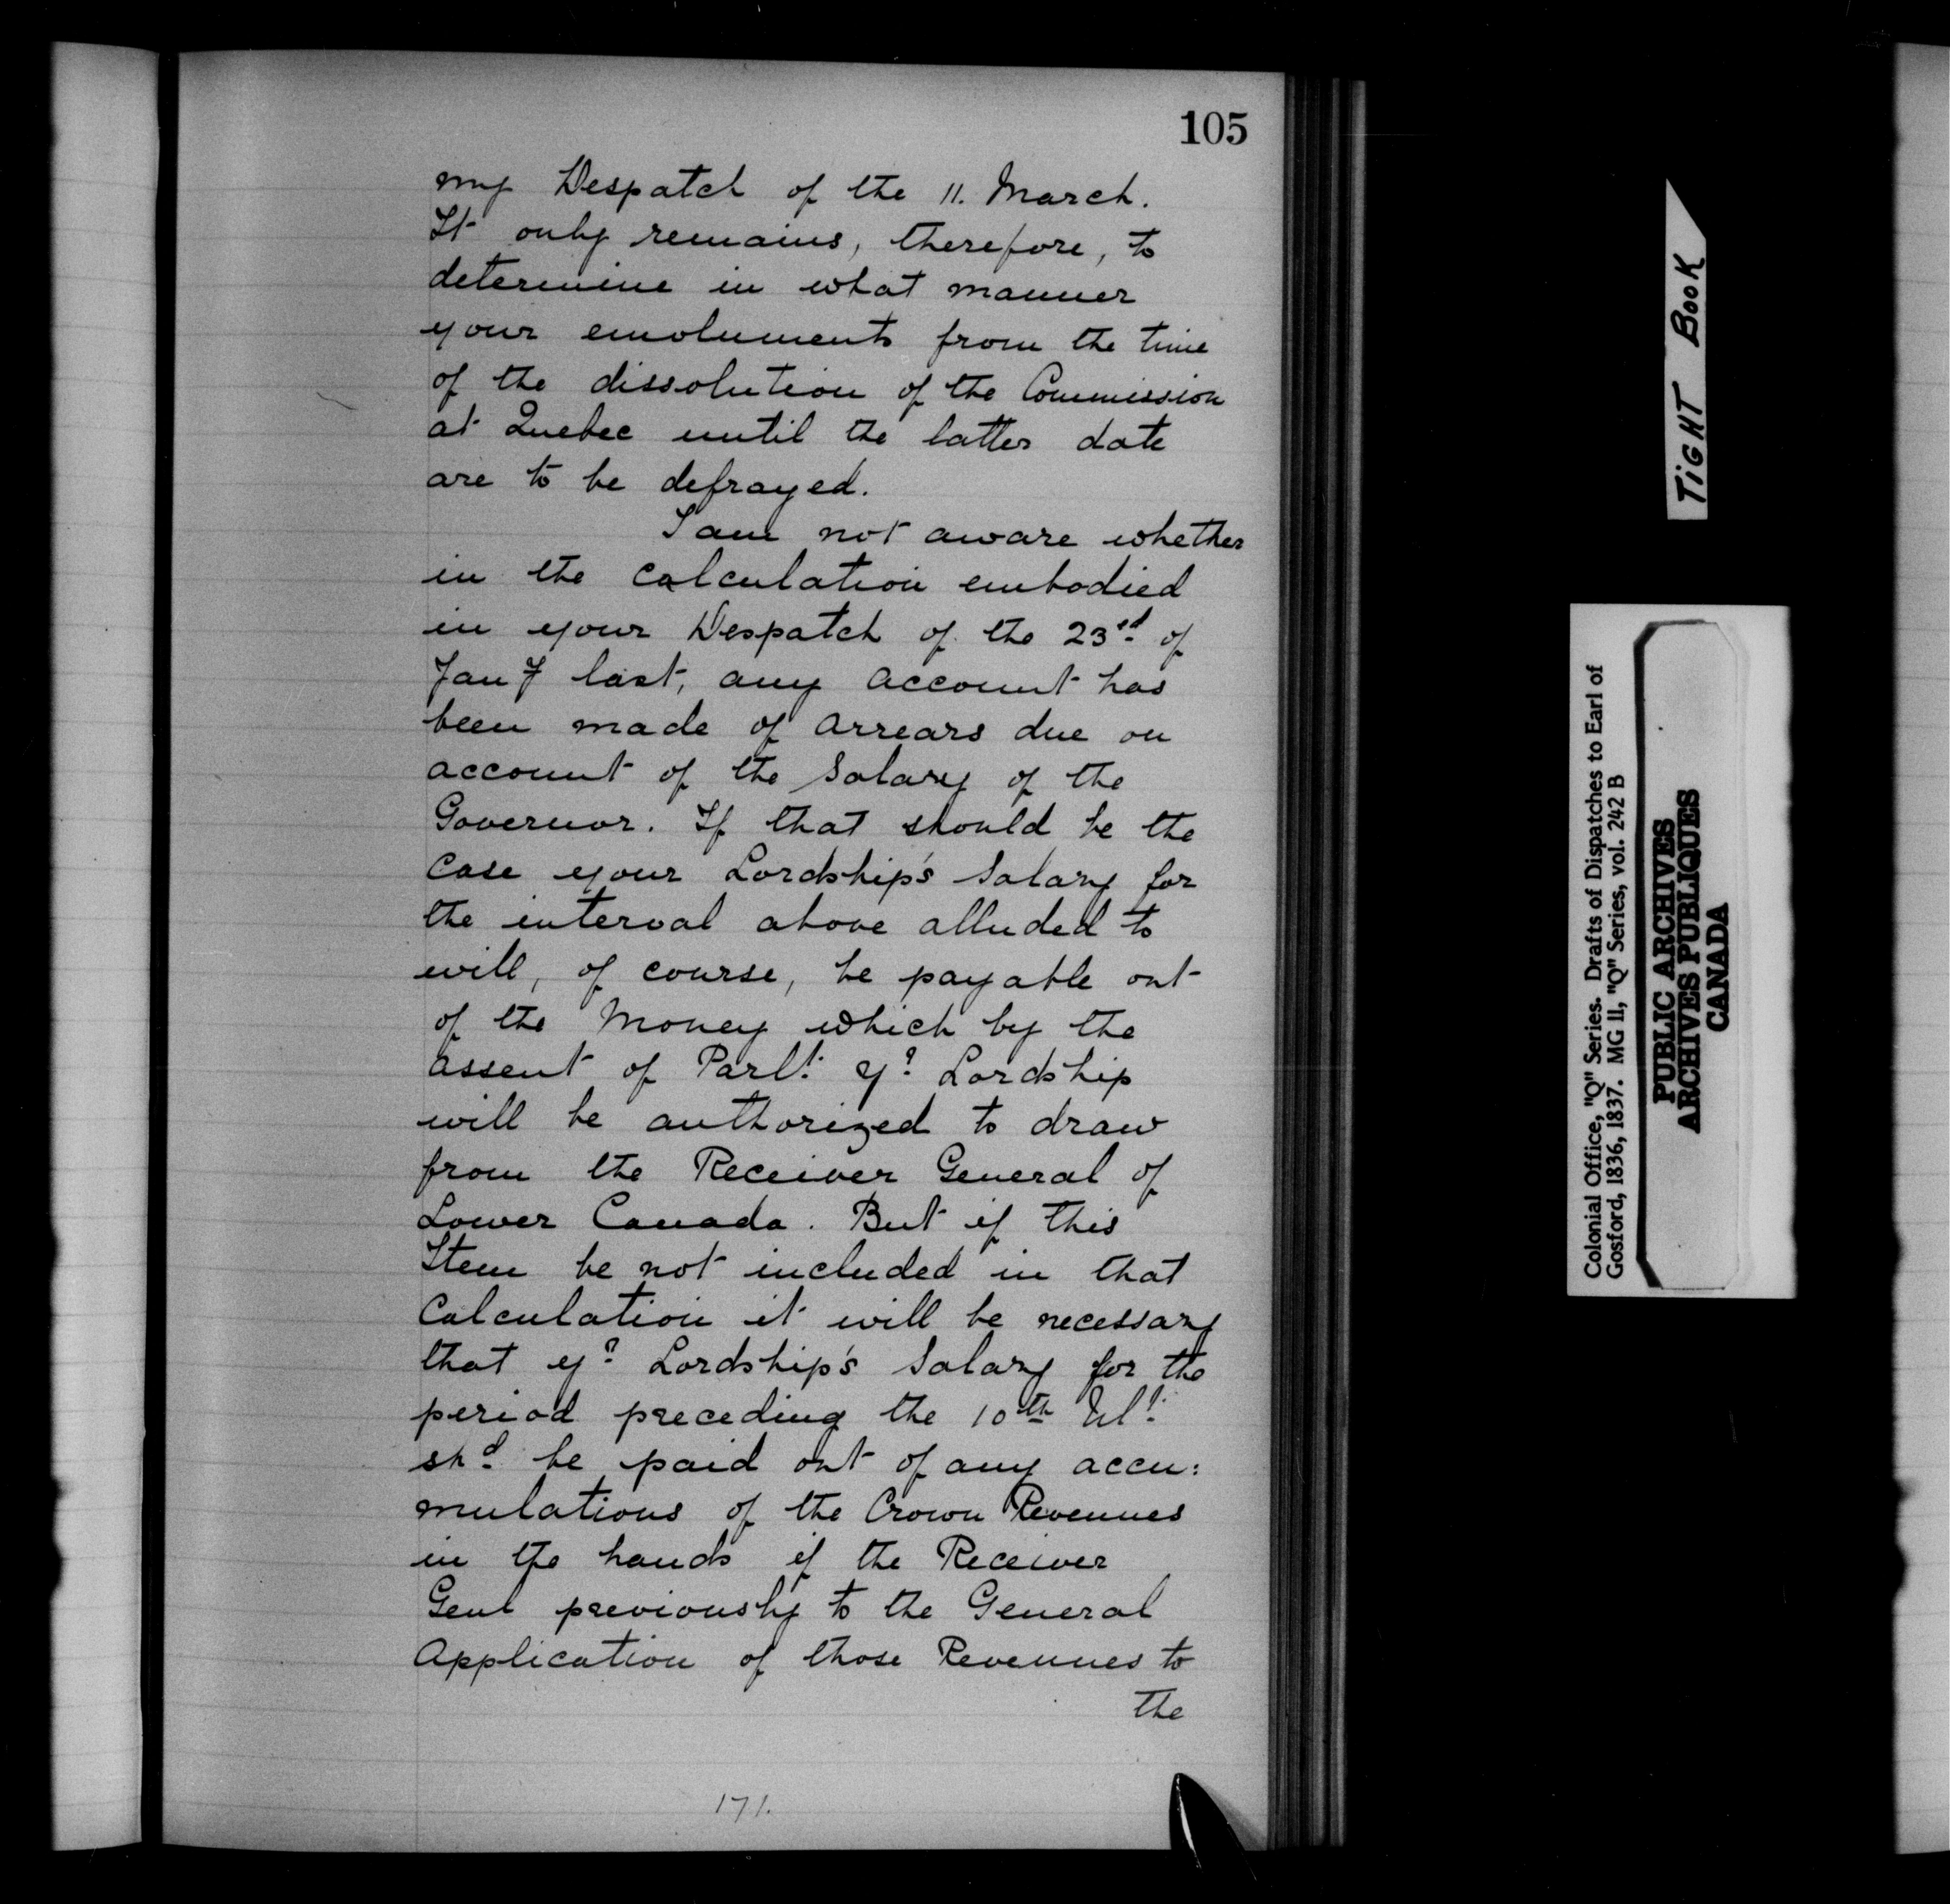 105
my Despatch of the 11. March.
It only remains, therefore, to
determine in what manner
your emoluments from the time
of the dissolution of the Commission
at Quebec until the latter date
are to be defrayed.
I am not aware whether
in the calculation embodied
in your Despatch of the 23rd of
Jany last, any account has
been made of arrears due on
account of the Salary of the
Governor. If that should be the
case your Lordship's Salary for
the interval above alluded to
will, of course, be payable out
of the Money which by the
assent of Parlt. yr. Lordship
will be authorized to draw
from the Receiver General of
Lower Canada. But if this
Item be not included in that
Calculation it will be necessary
that yr. Lordship's Salary for the
period preceding the 10th Ult.
shd. be paid out of any accu:
mulations of the Crown Revenues
in the hands of the Receiver
Genl previously to the General
Application of those Revenues to
the
171.
TIGHT BOOK
Colonial Office, "Q" Series. Drafts of Dispatches to Earl of
Gosford, 1836, 1837. MG 11, "Q" Series, vol. 242 B
PUBLIC ARCHIVES
ARCHIVES PUBLIQUES
CANADA